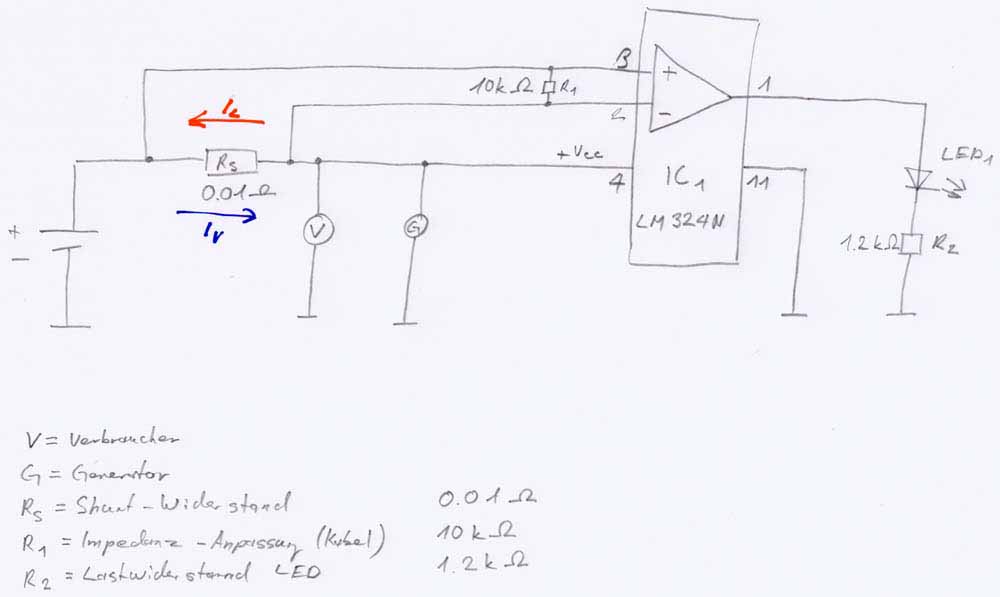 3
10kΩ R1
+
1
2
-
IL
+Vcc
LED1
RS
4
IC1
11
0.01Ω
LM324N
IV
V
G
1.2kΩ R2
+
-
V = Verbraucher
G = Generator
RS = Shunt-Widerstand 0.01Ω
R1 = Impedanz-Anpassung (Kabel) 10kΩ
R2 = Lastwiderstand LED 1.2kΩ